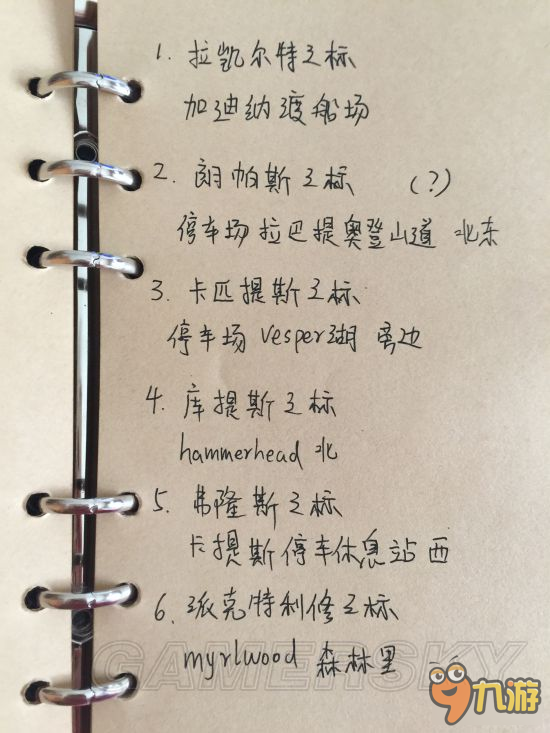 1. 拉凯尔特之标
加迪纳渡船场
2. 朗帕斯之标 (?)
停车场拉巴提奥登山道 北东
3. 卡匹提斯之标
停车场 Vesper湖 旁边
4. 库提斯之标
hammerhead 北
5. 弗隆斯之标
卡提斯停车休息站 西
6. 派克特利修之标
myrlwood 森林里
GAMERSKY
九游